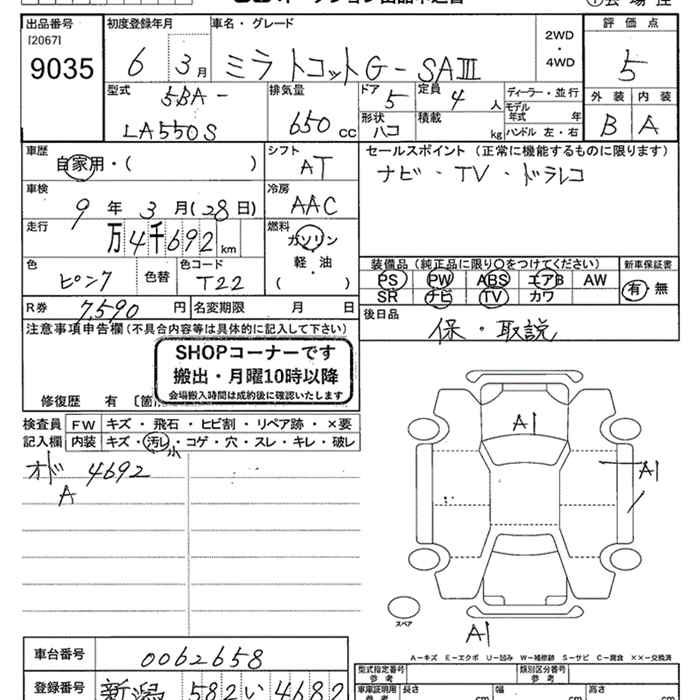 出品番号
[2067]
9035
初度登録年月
6 3月
車名・グレード
ミラ トコット G-SAⅢ
2WD
・
4WD
評価点
5
型式
5BA-
LA550S
排気量
650 cc
ドア
5
定員
4 人
形状
ハコ
積載
kg
ディーラー・並行
モデル年式 年
ハンドル 左・右
外装 内装
B A
車歴
自家用・( )
シフト
AT
セールスポイント (正常に機能するものに限ります)
ナビ・TV・ドラレコ
車検
9年 3月(28日)
冷房
AAC
走行
万4千692 km
燃料
ガソリン
軽・油
( )
色
ピンク
色替
色コード
T22
装備品 (純正品に限り○をつけてください)
PS PW ABS エアB AW
SR ナビ TV カワ
新車保証書
有・無
R券 7,590 円
名変期限 月 日
後日品
保・取説
注意事項申告欄 (不具合内容等は具体的に記入して下さい)
SHOPコーナーです
搬出・月曜10時以降
会場搬入時間は成約後に確認いたします
修復歴 有 〔箇
検査員
記入欄
FW キズ・飛石・ヒビ割・リペア跡・×要
内装 キズ・汚レ・コゲ・穴・スレ・キレ・破レ
小
オド 4692
A
A1
A1
A1
スペア
A−キズ E−エクボ U−凹み W−補修跡 S−サビ C−腐食 ××−交換済
車台番号 0062658
登録番号 新潟 582 い 4682
型式指定番号
参考
類別区分番号
参考
車庫証明用
参考
長さ cm
幅 cm
高さ cm